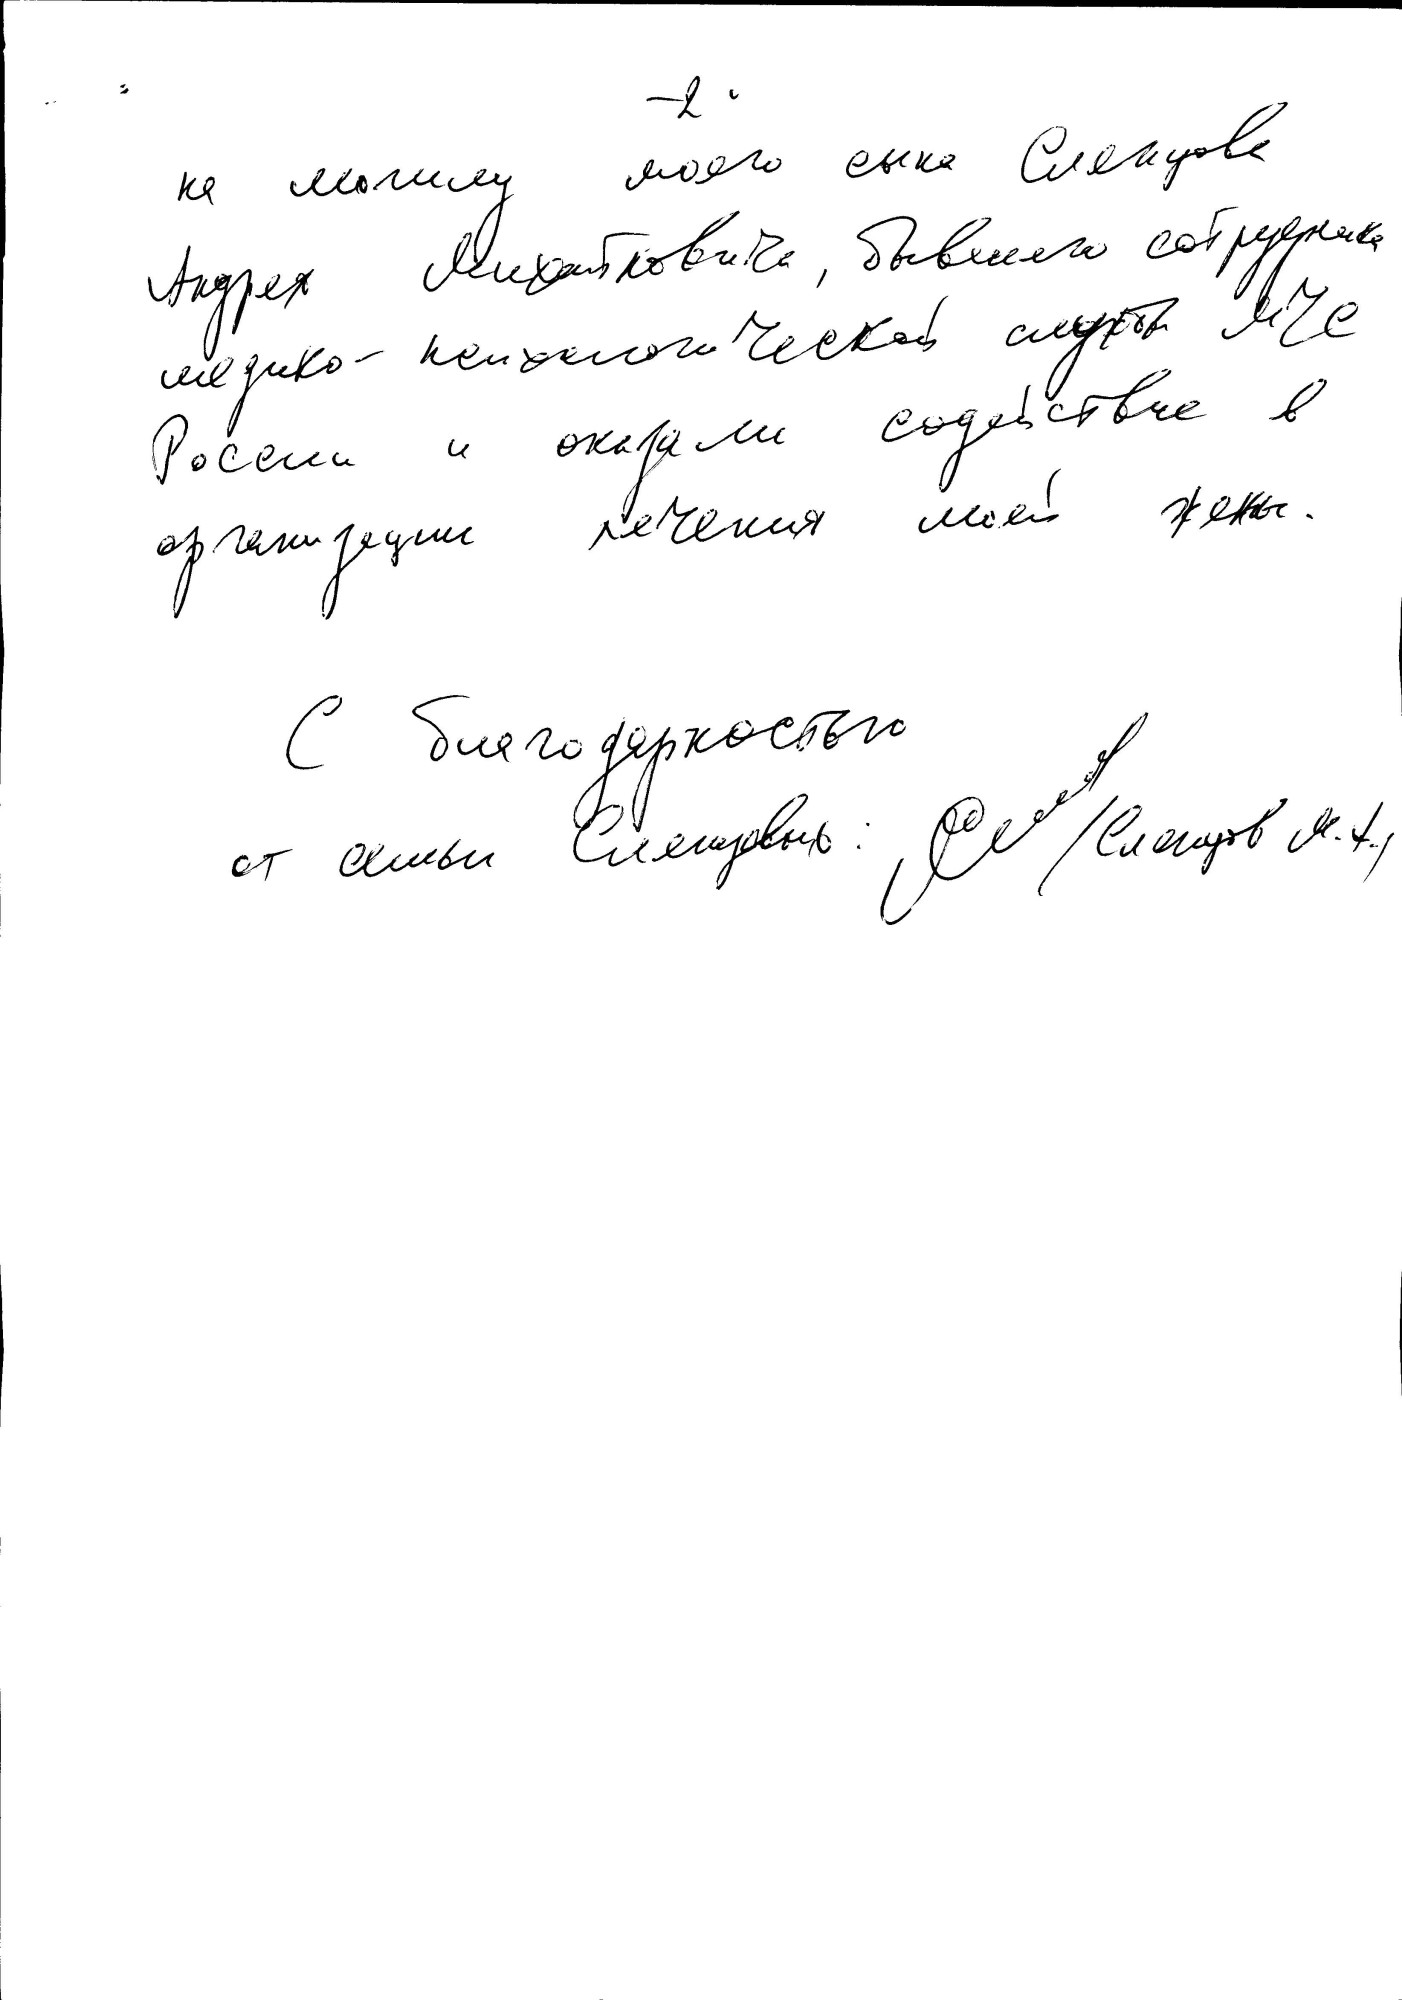 -2-
на могилу моего сына Слепцова
Андрея Михайловича, бывшего сотрудника
медико-психологической службы МЧС
России и оказали содействие в
организации лечения моей жены.
С благодарностью
от семьи Слепцовых: /Слепцов М.А./